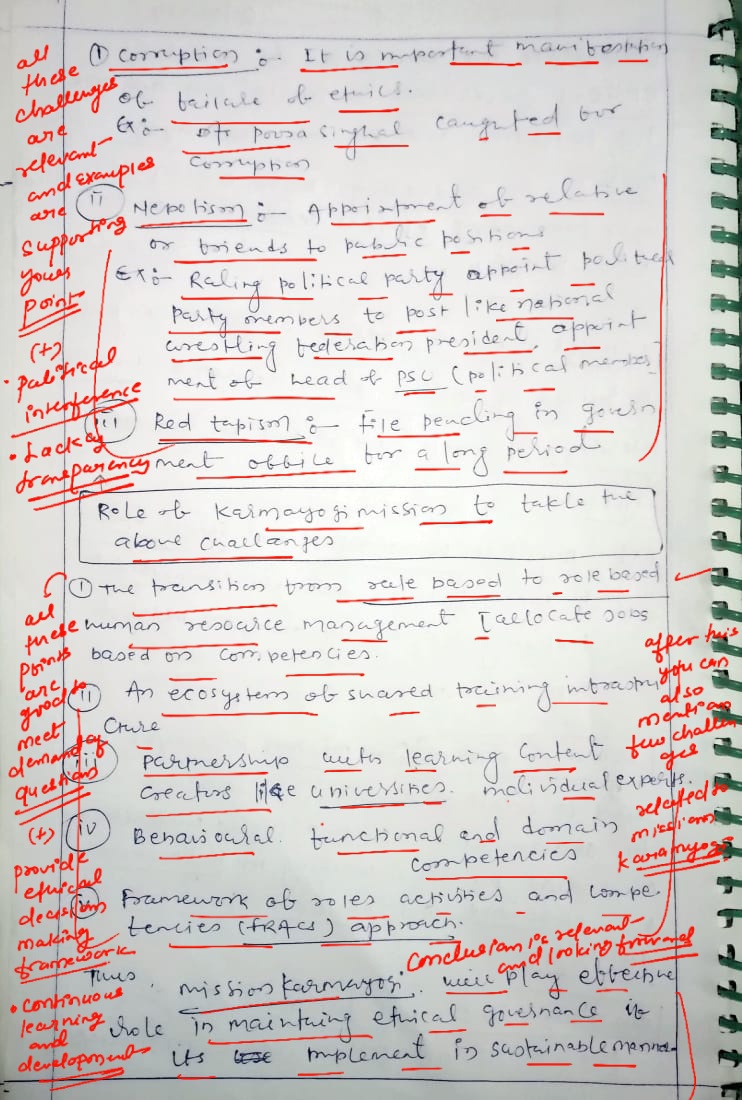 ① Corruption :- It is important manifestation
of failure of ethics.
Ex:- Pooja singhal caughted for
Corruption
ii Nepotism :- Appointment of relative
or friends to public positions
Ex:- Ruling political party appoint political
party members to post like national
wrestling federation president, appoint
ment of head of PSC (political member
iii Red tapism :- File pending in govern
ment office for a long period
Role of Karmayogi mission to takle the
above challanges
① The transition from rule based to role based
human resource management [allocate jobs
based on competencies.
ii An ecosystem of shared training infrastru
cture
iii partnership with learning content
creators like universities. individual experts.
iv Behavioural. functional and domain
Competencies
v Framework of roles activities and compe.
tencies (FRACs) approach.
Thus, mission karmayogi. will play effective
role in maintaining ethical governance if
its implement in sustainable manner
all
these
challenges
are
relevant
and examples
are
supporting
your
point
(+)
• political
interference
• Lack of
transparency
all
these
points
are
good to
meet
demand of
question
(+)
provide
ethical
decision
making
framework
• continuous
learning
and
development
after this
you can
also
mention
few challen
ges
related to
mission
karamyogi
Conclusion is relevant
and looking forward